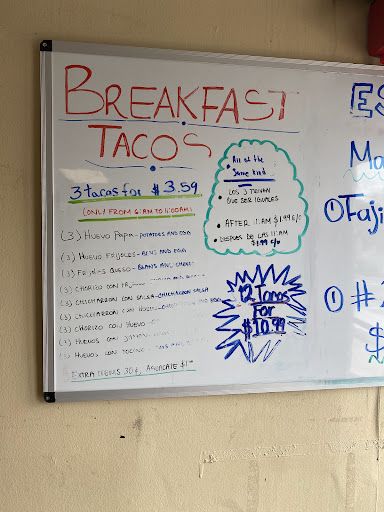 BREAKFAST
TACOS
3 tacos for $3.59
(ONLY FROM 6AM TO 11:00AM)
• All of the
Same kind
• LOS 3 TIENEN
QUE SER IGUALES
• AFTER 11:AM $1.99 c/o
• DESPUES DE LAS 11:AM
$1.99 c/o
(3) HUEVO PAPA - POTATOES AND EGG
(3) HUEVO FRIJOLES - BEANS AND EGG
(3) FRIJOLES QUESO - BEANS AND
(3) CHORIZO CON
(3) CHICHARRON CON SALSA - CHICHARRON SALSA
(3) CHICHARRON CON
(3) CHORIZO CON HUEVO
HUEVOS CON
HUEVOS CON TOCINO
EXTRA ITEMS 30¢, AGUACATE $1
12 Tacos
For
$10.99
ES
Ma
① Faji
① #
$